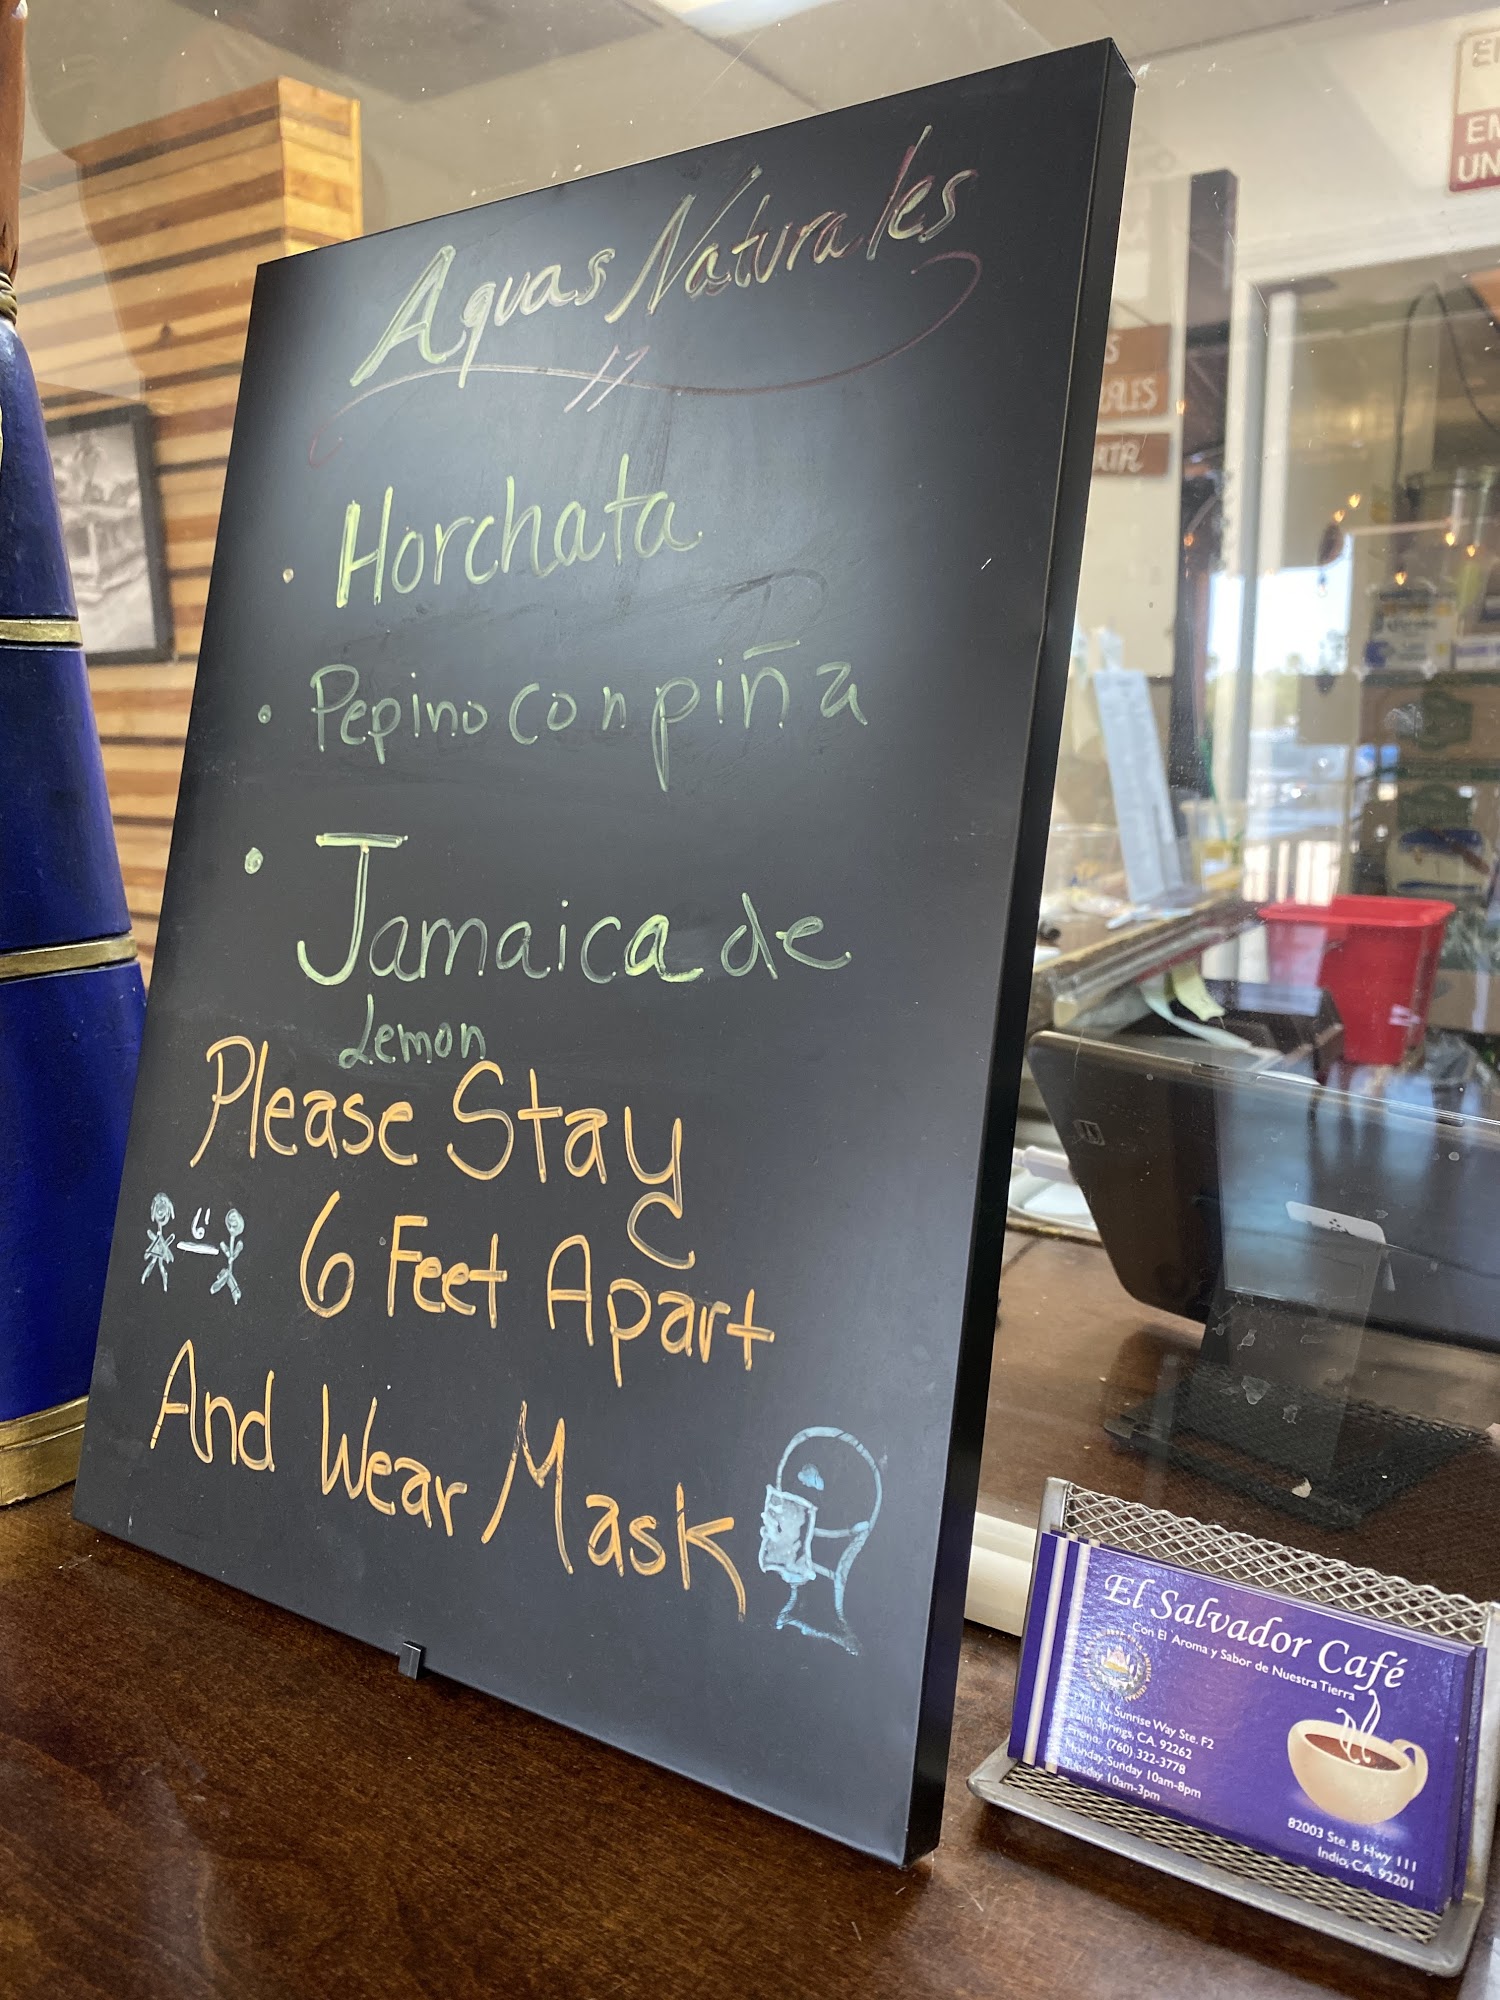 Aguas Naturales
• Horchata
• Pepino con piña
• Jamaica de
Lemon
Please Stay
6'
6 Feet Apart
And Wear Mask
El Salvador Café
Con El Aroma y Sabor de Nuestra Tierra
N. Sunrise Way Ste. F2
Palm Springs, CA. 92262
Phone: (760) 322-3778
Monday-Sunday 10am-8pm
Tuesday 10am-3pm
82003 Ste. B Hwy 111
Indio, CA. 92201
EM
UN